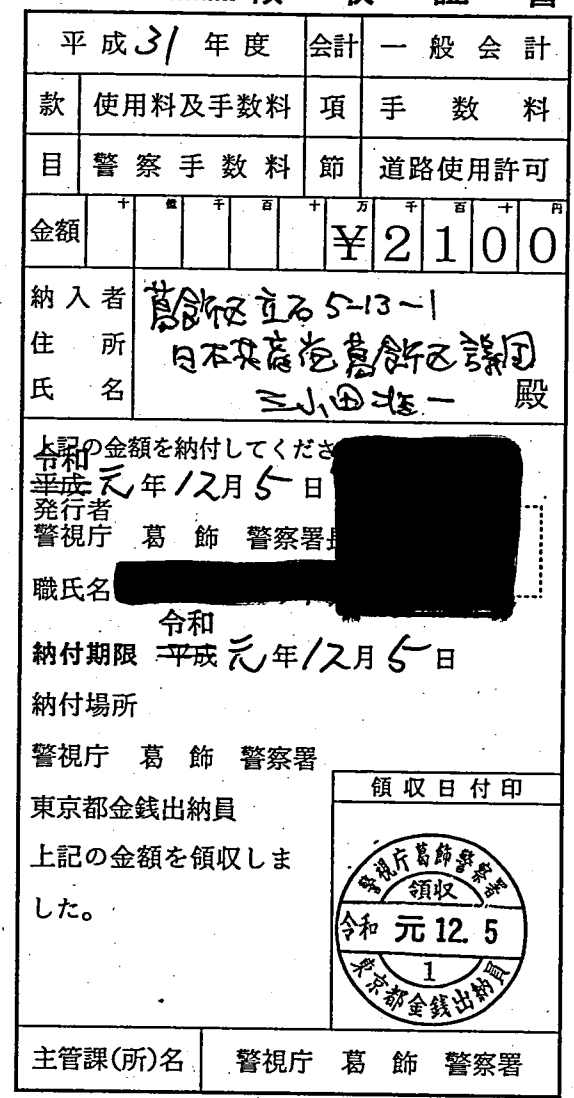 領収証書
平成31年度 会計 一般会計
款 使用料及手数料 項 手数料
目 警察手数料 節 道路使用許可
金額 十 億 千 百 十 万 千 百 十 円
¥2100
納入者 葛飾区立石5-13-1
住所 日本共産党葛飾区議団
氏名 三小田准一 殿
上記の金額を納付してくださ
令和
平成元年12月5日
発行者
警視庁 葛飾 警察署長
職氏名
令和
納付期限 平成元年12月5日
納付場所
警視庁 葛飾 警察署
東京都金銭出納員
上記の金額を領収しま
した。
領収日付印
警視庁葛飾警察署
領収
令和 元 12. 5
1
東京都金銭出納員
主管課(所)名 警視庁 葛飾 警察署